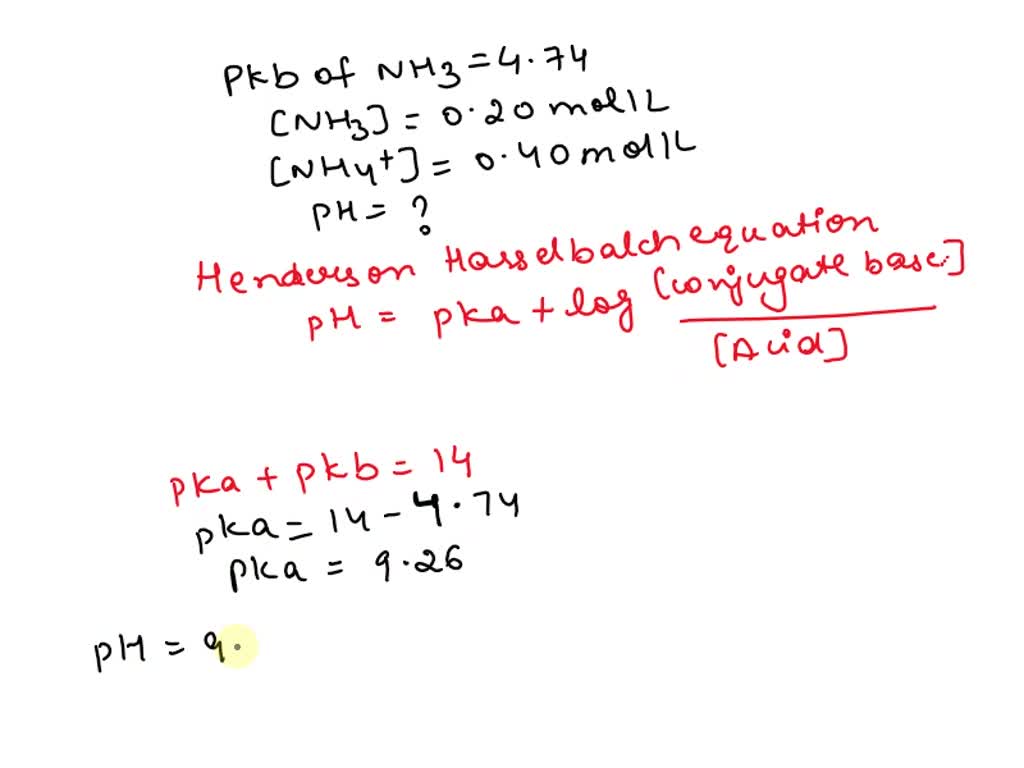 Pkb of NH3 = 4.74
[NH3] = 0.20 mol/L
[NH4+] = 0.40 mol/L
pH = ?
Henderson Hasselbalch equation
pH = pka + log [conjugate base]
[Acid]
pka + pkb = 14
pka = 14 - 4.74
pka = 9.26
pH = 9.